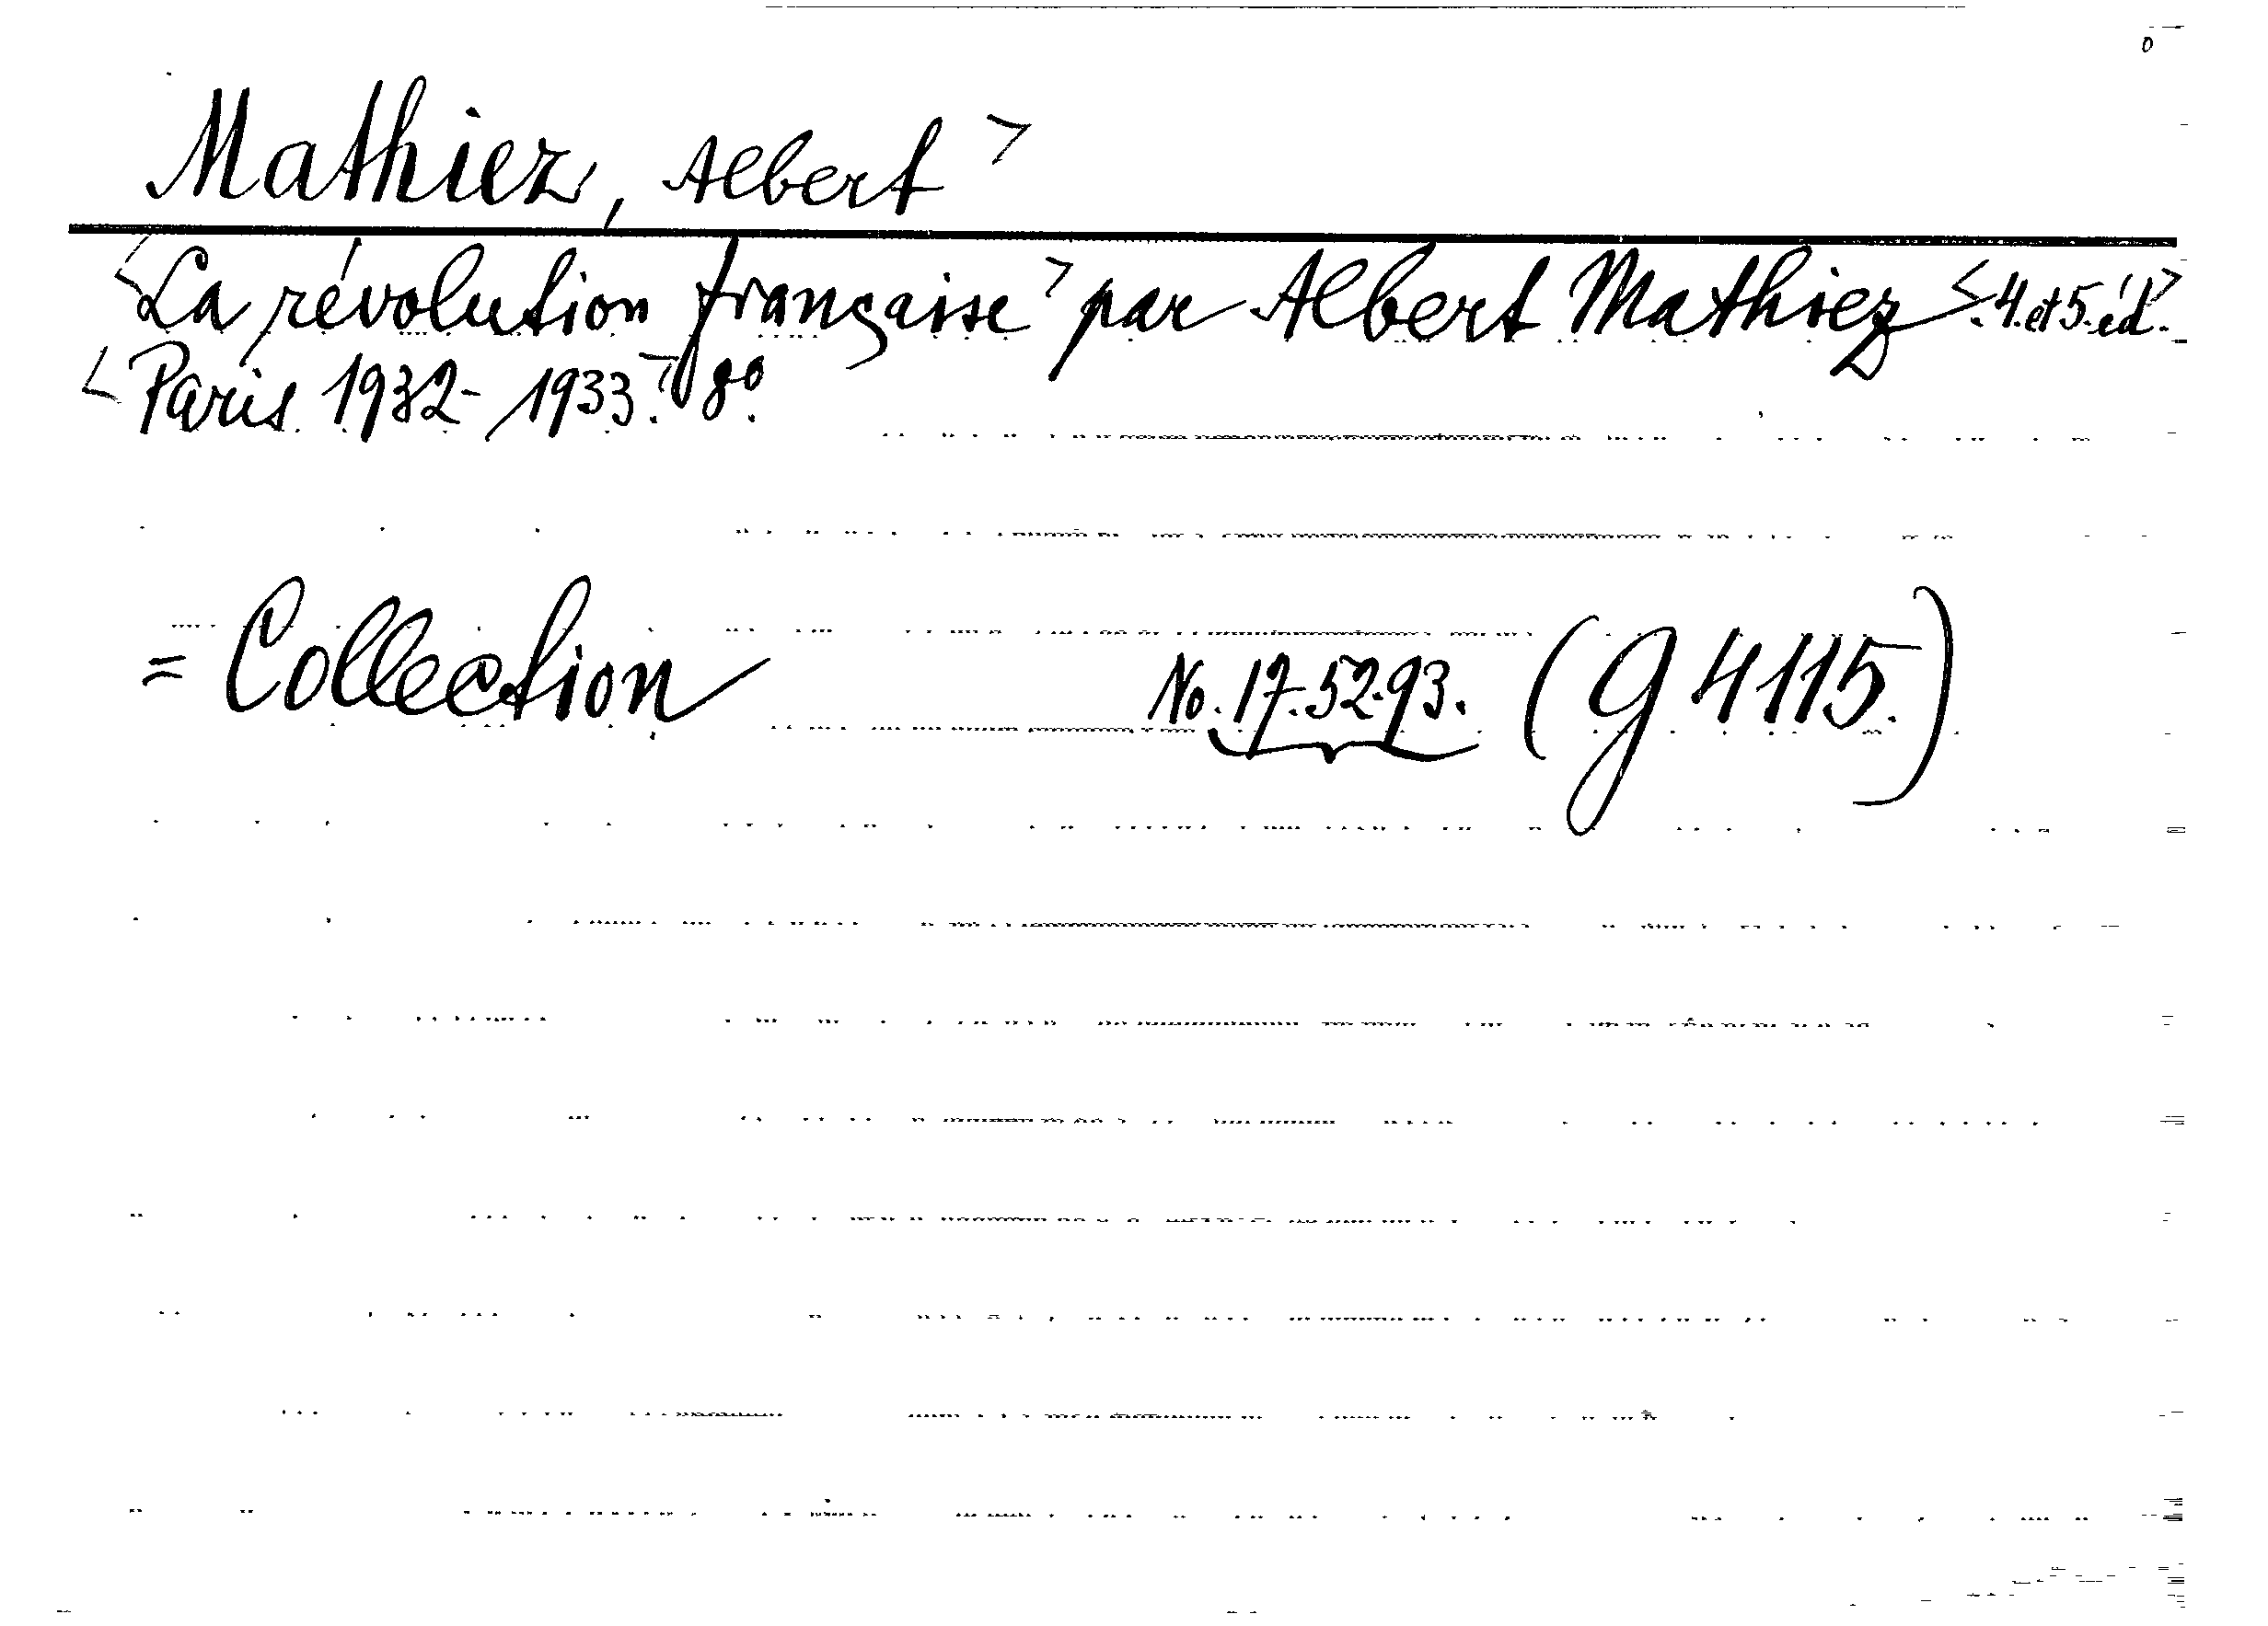 Mathiez, Albert>
<La révolution française> par Albert Mathiez <.4. et 5. éd.>
<Paris 1932-1933.> 8º.
= Collection No. 17.52.93. (G 4115.)